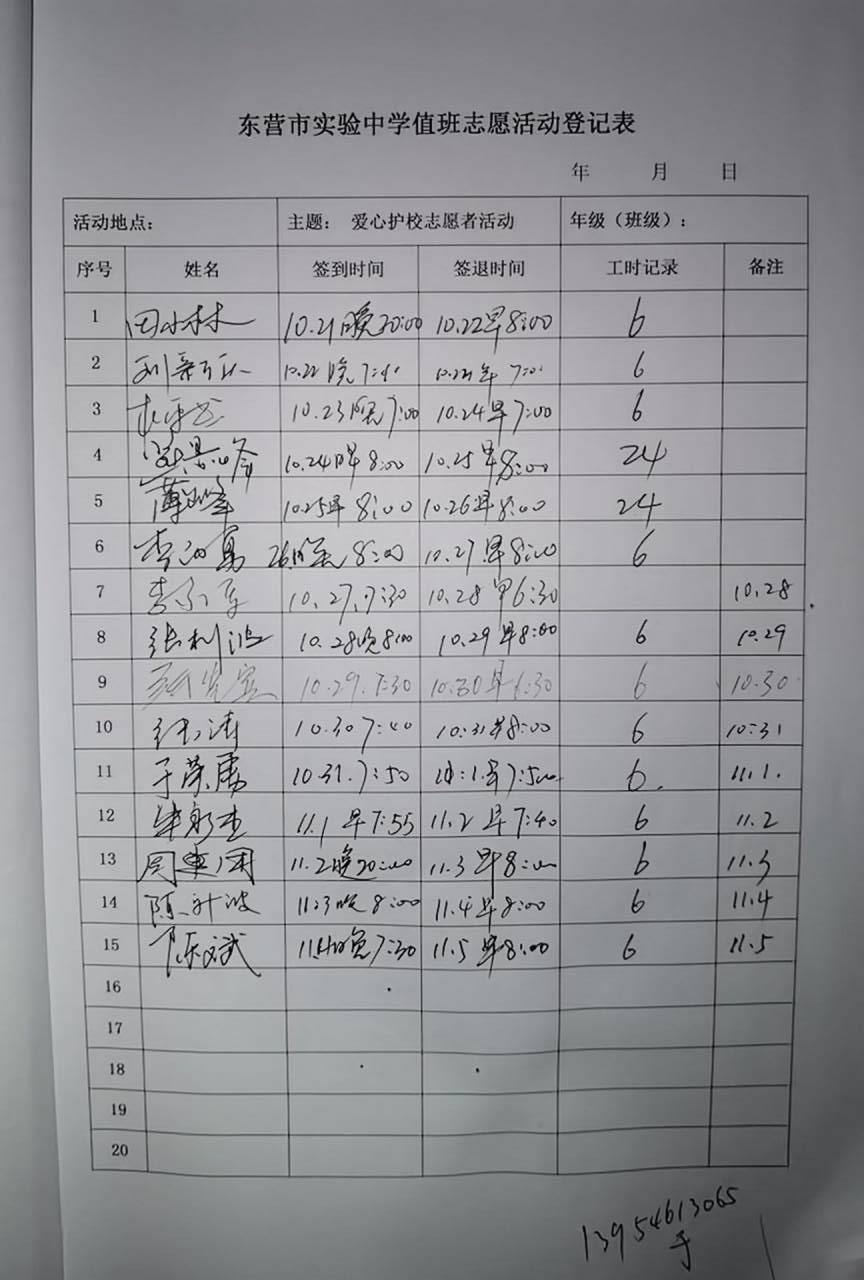 东营市实验中学值班志愿活动登记表
年 月 日
活动地点: 主题: 爱心护校志愿者活动 年级(班级):
序号 姓名 签到时间 签退时间 工时记录 备注
1 田小林 10.21晚20:00 10.22早8:00 6
2 10.22晚7: 7:0 6
3 10.23晚7:00 10.24早7:00 6
4 10.24早8:00 10.25早8:00 24
5 10.25早8:00 10.26早8:00 24
6 26晚8:00 10.27早8:00 6
7 10.27.7:30 10.28早6:30 10.28
8 张利波 10.28晚8:00 10.29早8:00 6 10.29
9 10.29.7:30 10.30早6:30 6 10.30
10 张涛 10.30 7:40 10.31早8:00 6 10.31
11 于荣 10.31.7:50 6. 11.1.
12 11.1早7:55 11.2早7:40 6 11.2
13 11.2晚20:00 11.3早8:00 6 11.3
14 陈升波 11.3晚8:00 11.4早8:00 6 11.4
15 陈斌 11.4晚7:30 11.5早8:00 6 11.5
16
17
18
19
20
13954613065